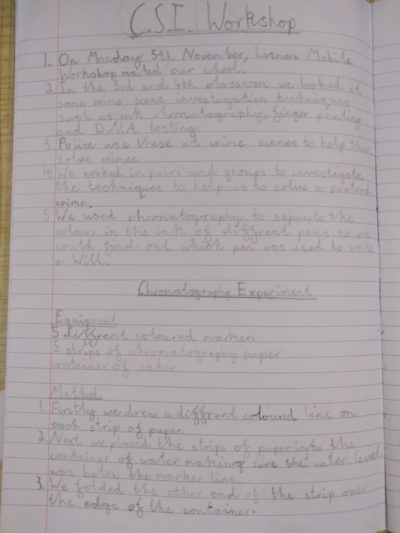 C.S.I. Workshop
1. On Monday 5th November, Lismore Mobile
Workshop visited our school.
2. In the 3rd and 4th classroom we looked at
some crime scene investigation techniques
such as ink chromatography, finger printing
and D.N.A testing.
3. Police use these at crime scenes to help them
solve crimes.
4. We worked in pairs and groups to investigate
the techniques to help us to solve a pretend
crime.
5. We used chromatography to separate the
colours in the ink of different pens so we
could find out which pen was used to write
a Will.
Chromatography Experiment
Equipment
5 different coloured markers
5 strips of chromatography paper
container of water
Method
1. Firstly we drew a different coloured line on
each strip of paper.
2. Next we placed the strips of paper into the
container of water making sure the water level
was below the marker line.
3. We folded the other end of the strip over
the edge of the container.